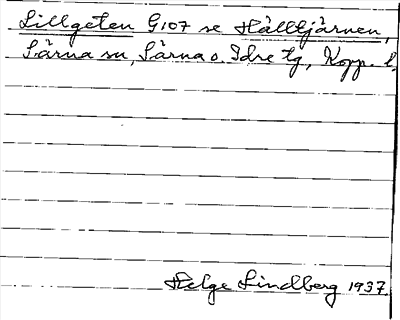 Lillgeten G107 se Hålltjärnen,
Särna sn, Särna o. Idre tg, Kopp. l.
Helge Lindberg 1937.